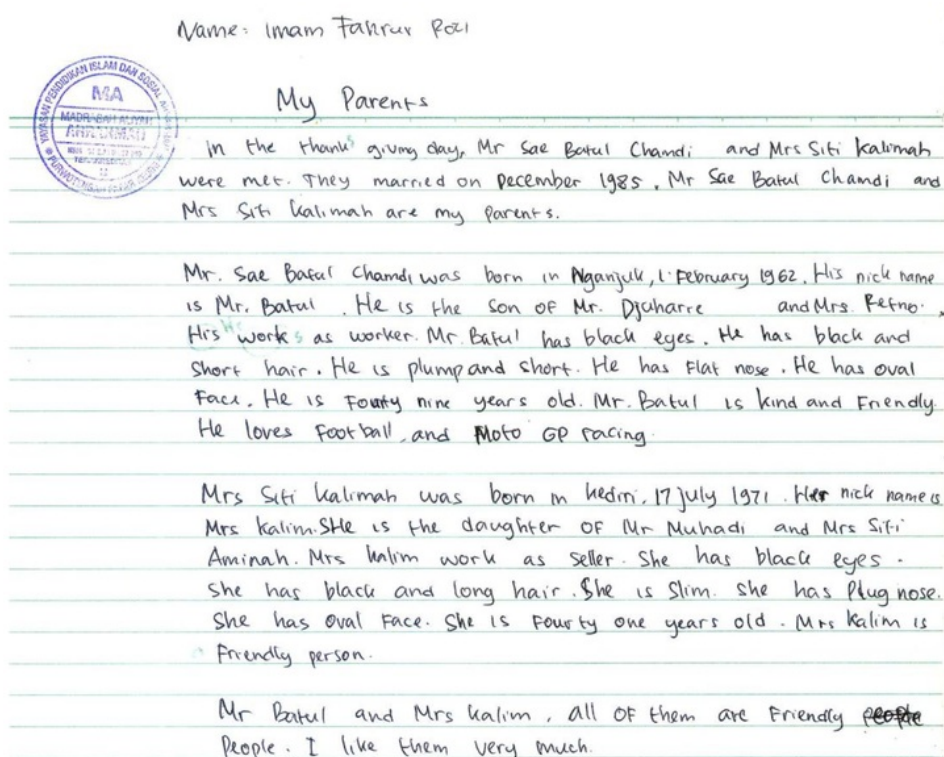 Name: Imam Fahrur Rozi
YAYASAN PENDIDIKAN ISLAM DAN SOSIAL
MA
MADRASAH ALIYAH
My Parents
In the thanks giving day, Mr Sae Batul Chamdi and Mrs Siti Kalimah
were met. They married on December 1985. Mr Sae Batul Chamdi and
Mrs Siti Kalimah are my parents.
Mr. Sae Batul Chamdi was born in Nganjuk, 1 February 1962. His nick name
is Mr. Batul. He is the son of Mr. Djuharre and Mrs. Retno.
His He works as worker. Mr. Batul has black eyes. He has black and
short hair. He is plump and short. He has Flat nose. He has oval
Face. He is Fourty nine years old. Mr. Batul is kind and Friendly.
He loves Football, and Moto GP racing.
Mrs Siti Kalimah was born in kediri, 17 july 1971. Her nick name is
Mrs Kalim. SHe is the daughter of Mr Muhadi and Mrs Siti
Aminah. Mrs Kalim work as seller. She has black eyes.
She has black and long hair. She is Slim. she has Plug nose.
She has oval Face. She is Fourty one years old. Mrs Kalim is
Friendly person.
Mr Batul and Mrs Kalim, all OF them are Friendly people
People. I like them very much.